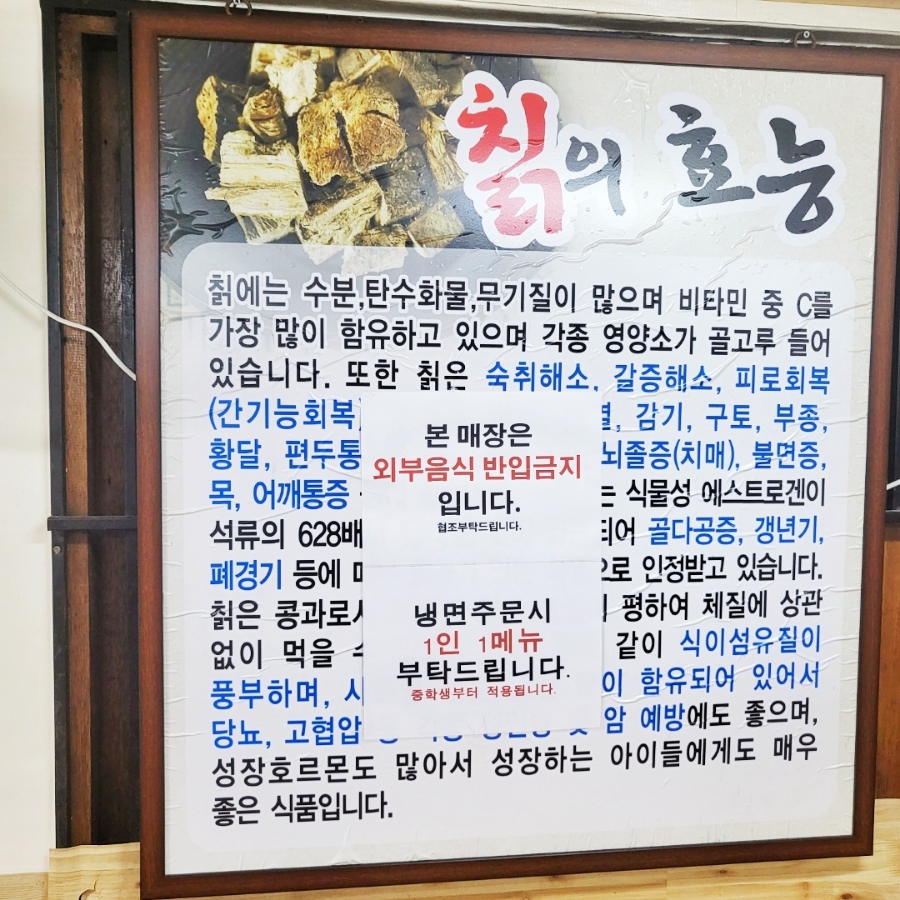 칡의 효능
칡에는 수분,탄수화물,무기질이 많으며 비타민 중 C를
가장 많이 함유하고 있으며 각종 영양소가 골고루 들어
있습니다. 또한 칡은 숙취해소, 갈증해소, 피로회복
(간기능회복 감기, 구토, 부종,
황달, 편두통 뇌졸증(치매), 불면증,
목, 어깨통증 는 식물성 에스트로겐이
석류의 628배 되어 골다공증, 갱년기,
폐경기 등에 으로 인정받고 있습니다.
칡은 콩과로 평하여 체질에 상관
없이 먹을 같이 식이섬유질이
풍부하며, 이 함유되어 있어서
당뇨, 고혈압 암 예방에도 좋으며,
성장호르몬도 많아서 성장하는 아이들에게도 매우
좋은 식품입니다.
본 매장은
외부음식 반입금지
입니다.
협조부탁드립니다.
냉면주문시
1인 1메뉴
부탁드립니다.
중학생부터 적용됩니다.